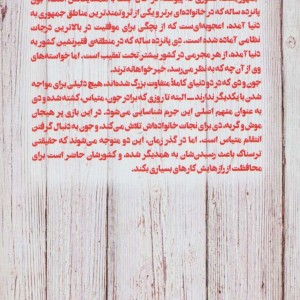 پانزده ساله که در خانواده‌ای برتر و یکی از ثروتمندترین مناطق جمهوری به
دنیا آمده، اعجوبه‌ای ست که از بچگی برای موفقیت در بالاترین درجات
نظامی آماده شده است. دی پانزده ساله که در منطقه‌ی فقیرنشین کشور به
دنیا آمده، از هر مجرمی در کشور بیشتر تحت تعقیب است، اما خواسته‌های
وی از آن‌چه که به نظر می‌رسد، خیرخواهانه‌ترند.
جون و دی که در دو دنیای کاملاً متفاوت بزرگ شده‌اند، هیچ دلیلی برای مواجه
شدن با یکدیگر ندارند ــ البته تا روزی که برادر جون، متیاس، کشته شده و دی
به عنوان متهم اصلی این جرم شناسایی می‌شود. در این بازی پر هیجان
موش و گربه، دی برای نجات خانواده‌اش تلاش می‌کند، و جون به دنبال گرفتن
انتقام متیاس است. اما در گذر زمان، این دو متوجه می‌شوند که حقیقتی
ترسناک باعث رسیدن‌شان به همدیگر شده، و کشورشان حاضر است برای
محافظت از رازهایش کارهای بسیاری بکند.